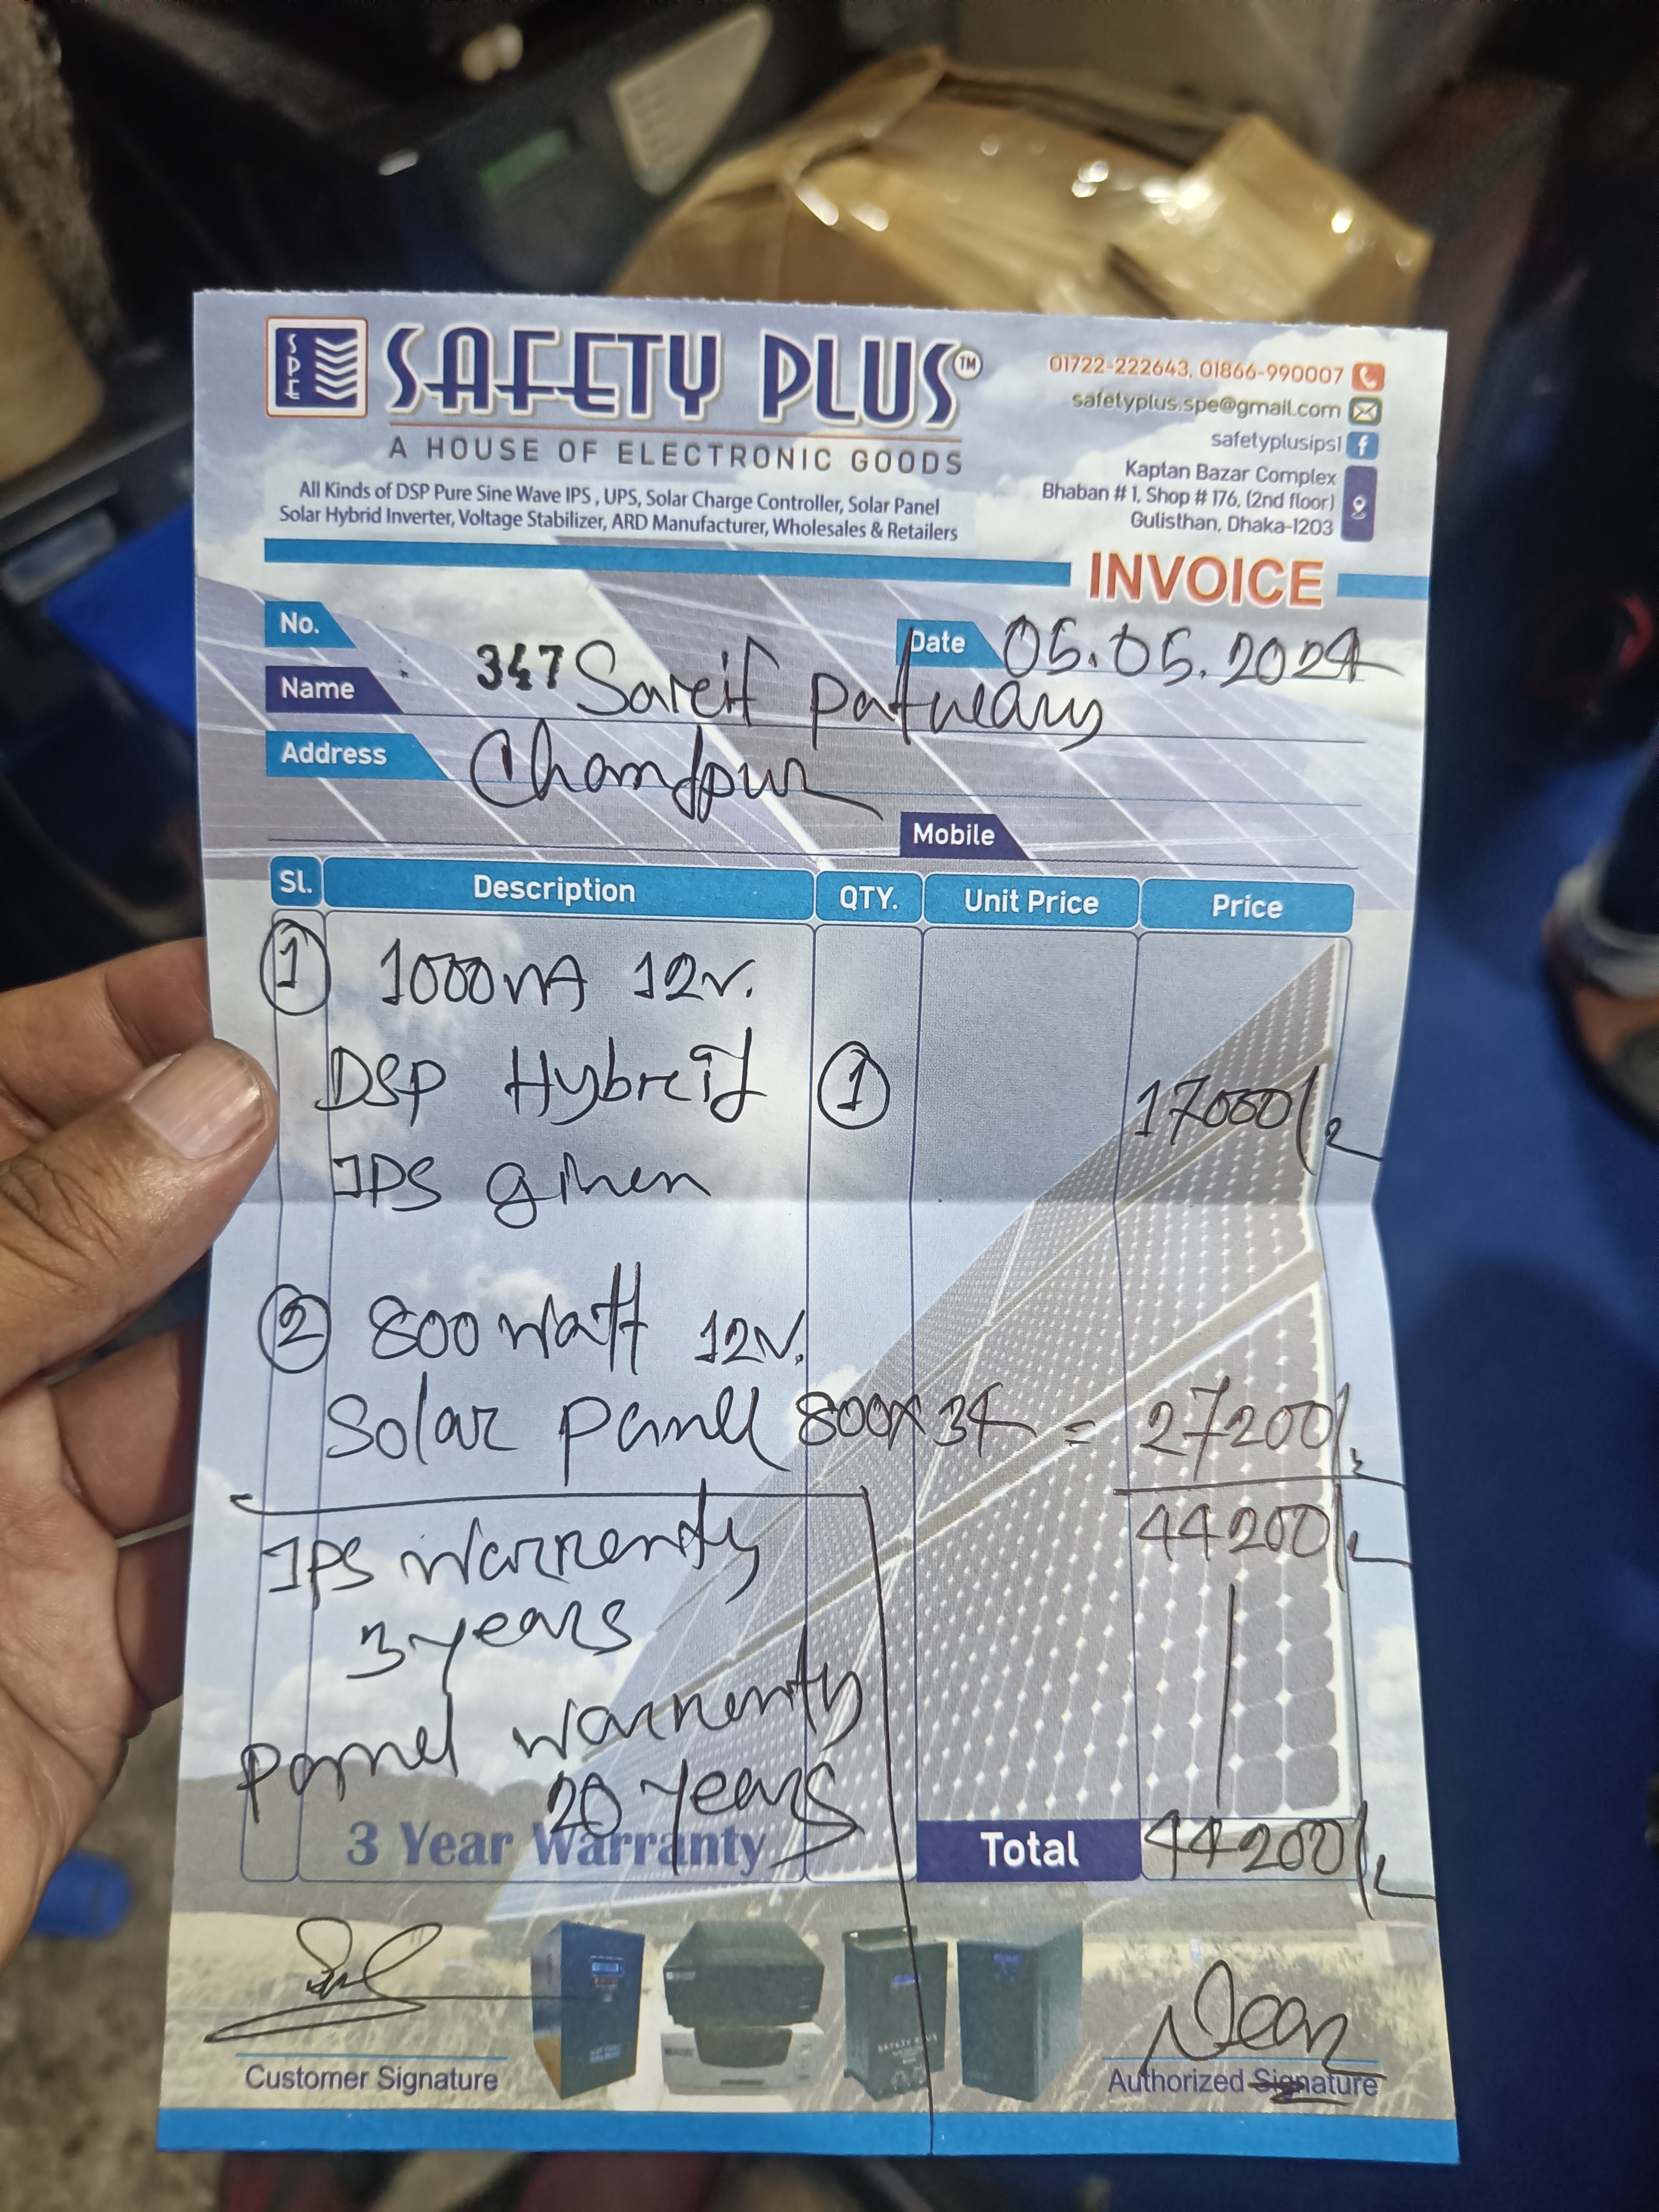 SPE
SAFETY PLUS™
A HOUSE OF ELECTRONIC GOODS
All Kinds of DSP Pure Sine Wave IPS , UPS, Solar Charge Controller, Solar Panel
Solar Hybrid Inverter, Voltage Stabilizer, ARD Manufacturer, Wholesales & Retailers
01722-222643, 01866-990007
safetyplus.spe@gmail.com
safetyplusips1
Kaptan Bazar Complex
Bhaban # 1, Shop # 176, (2nd floor)
Gulisthan, Dhaka-1203
INVOICE
No. 347
Date 05.05.2024
Name Sareif patweary
Address Chandpur
Mobile
Sl. Description QTY. Unit Price Price
1 1000VA 12v.
DSP Hybreid 1 17000/-
IPS
2 800 watt 12v.
Solar panel 800 x 34 = 27200/-
44200/-
IPS warrenty
3 years
panel warrenty
20 years
3 Year Warranty
Total 44200/-
Customer Signature
Authorized Signature